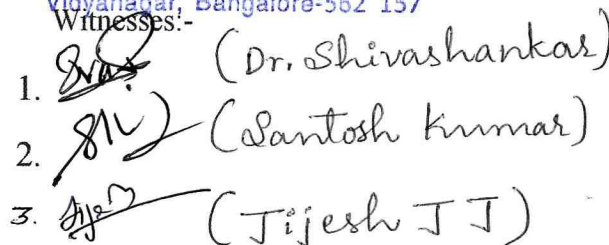 Vidyanagar, Bangalore-562 157
Witnesses:-
1. (Dr. Shivashankar)
2. (Santosh Kumar)
3. (Jijesh J J)